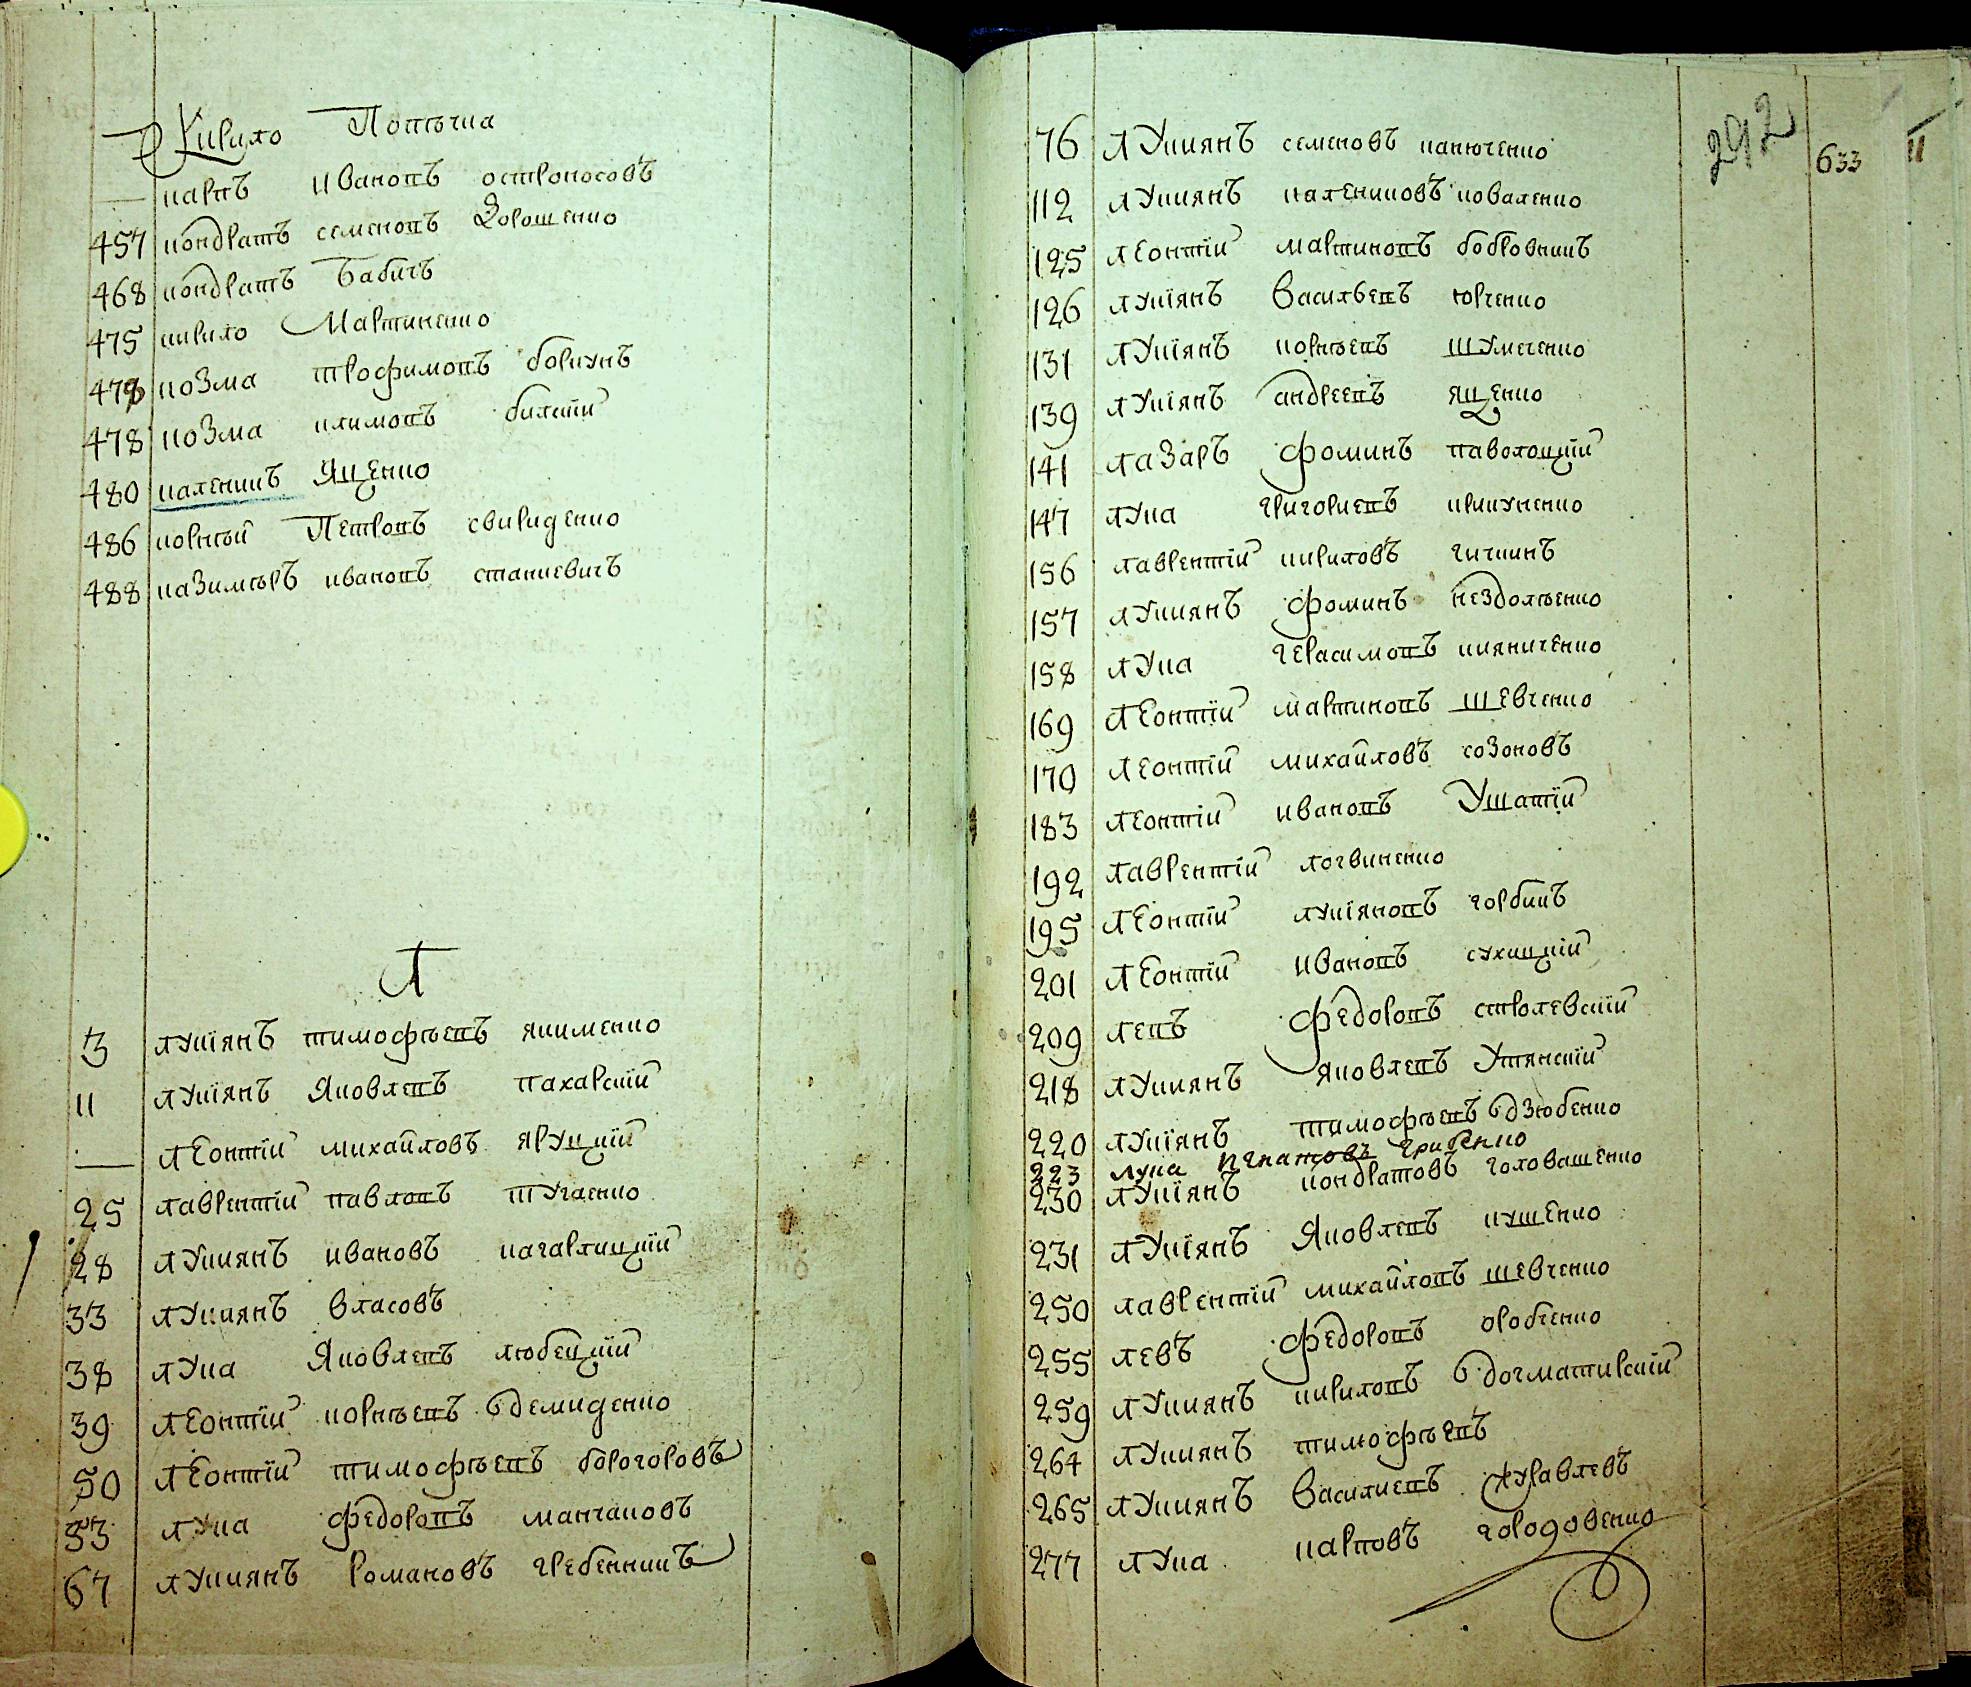 Кирило Попѣчка
— карпъ Ивановъ остроносовъ
457 кондратъ семеновъ Дорошенко
468 кондратъ Бабичъ
475 кирило Мартиненко
478 козма трофимовъ боркунъ
478 козма климовъ билский
480 каленикъ Ященко
486 корнѣй Петровъ свириденко
488 казимѣръ ивановъ станкевичъ
Л
3 лукіянъ тимофѣевъ якименко
11 лукіянъ Яковлевъ пахарский
— леонтій михайловъ яруцкий
25 лаврентій павловъ тугаенко
28 лукиянъ ивановъ кагарлицкий
33 лукиянъ власовъ
38 лука Яковлевъ любецкий
39 леонтий корнѣевъ демиденко
50 леонтий тимофѣевъ богоровъ
53 лука федоровъ манчаковъ
67 лукиянъ романовъ гребенникъ
292
633
11
76 лукиянъ семеновъ канюченко
112 лукиянъ калениковъ коваленко
125 леонтій мартиновъ бобровникъ
126 лукіянъ Васильевъ юрченко
131 лукіянъ корнѣевъ шумеченко
139 лукіянъ андреевъ ященко
141 лазаръ фоминъ паволоцкій
147 лука григориевъ крикуненко
156 лаврентій кириловъ гичкинъ
157 лукиянъ фоминъ нездолѣенко
158 лука герасимовъ кияниченко
169 леонтій мартиновъ шевченко
170 леонтій михайловъ созоновъ
183 леонтій ивановъ Ушатій
192 лаврентій логвиненко
195 леонтій лукіяновъ горбикъ
201 леонтій Ивановъ сухицкій
209 левъ федоровъ стролевский
218 лукиянъ яковлевъ Утянский
220 лукіянъ тимофѣевъ дзюбенко
223 лука Игнатовъ Гриценко
230 лукіянъ кондратовъ головашенко
231 лукіянъ Яковлевъ кушенко
250 лаврентій михайловъ шевченко
255 левъ федоровъ оробченко
259 лукиянъ кириловъ догматирский
264 лукиянъ тимофѣевъ
265 лукиянъ Василиевъ журавлевъ
277 лука карповъ городовенко